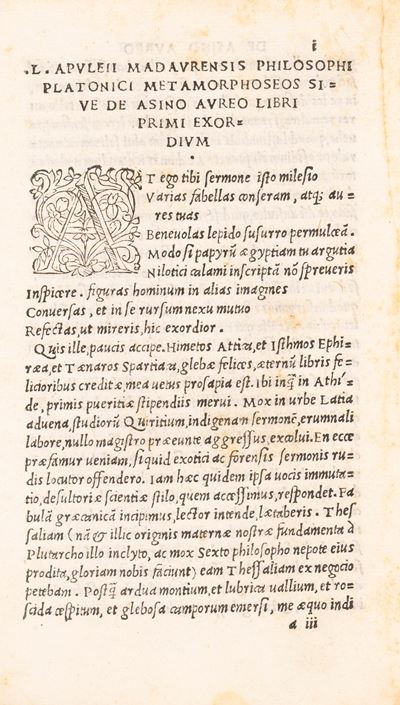 i
.L. APVLEII MADAVRENSIS PHILOSOPHI
PLATONICI METAMORPHOSEOS SI=
VE DE ASINO AVREO LIBRI
PRIMI EXOR=
DIVM
.
AT ego tibi sermone isto milesio
Varias fabellas conseram, atq; au=
res tuas
Beneuolas lepido susurro permulceã.
Modo si papyrũ ægyptiam tu argutia
Nilotici calami inscriptã nõ spreueris
Inspicere. figuras hominum in alias imagines
Conuersas, et in se rursum nexu mutuo
Refectas, ut mireris, hic exordior.
Quis ille, paucis accipe. Himetos Attica, et Isthmos Ephi=
ræa, et Tænaros Spartiata, glebæ felices, æternũ libris fe=
licioribus creditæ, mea uetus prosapia est. Ibi inq̃ in Athi=
de, primis pueritiæ stipendiis merui. Mox in urbe Latia
aduena, studiorũ Quiritium, indigenan sermonẽ, erumnali
labore, nullo magistro præeunte aggressus, excolui. En ecce
præfamur ueniam, siquid exotici ac forensis sermonis ru=
dis locutor offendero. Iam hæc quidem ipsa uocis immuta=
tio, desultoriæ scientiæ stilo, quem accessimus, respondet. Fa
bulã græcanicã incipimus, lector intende, lætaberis. Thes
saliam (nã & illic originis maternæ nostræ fundamenta à
Plutarcho illo inclyto, ac mox Sexto philosopho nepote eius
prodita, gloriam nobis faciunt) eam Thessaliam ex negocio
petebam. Postq̃ ardua montium, et lubrica uallium, et ro=
scida cespitum, et glebosa camporum emersi, me æquo indi
a iii